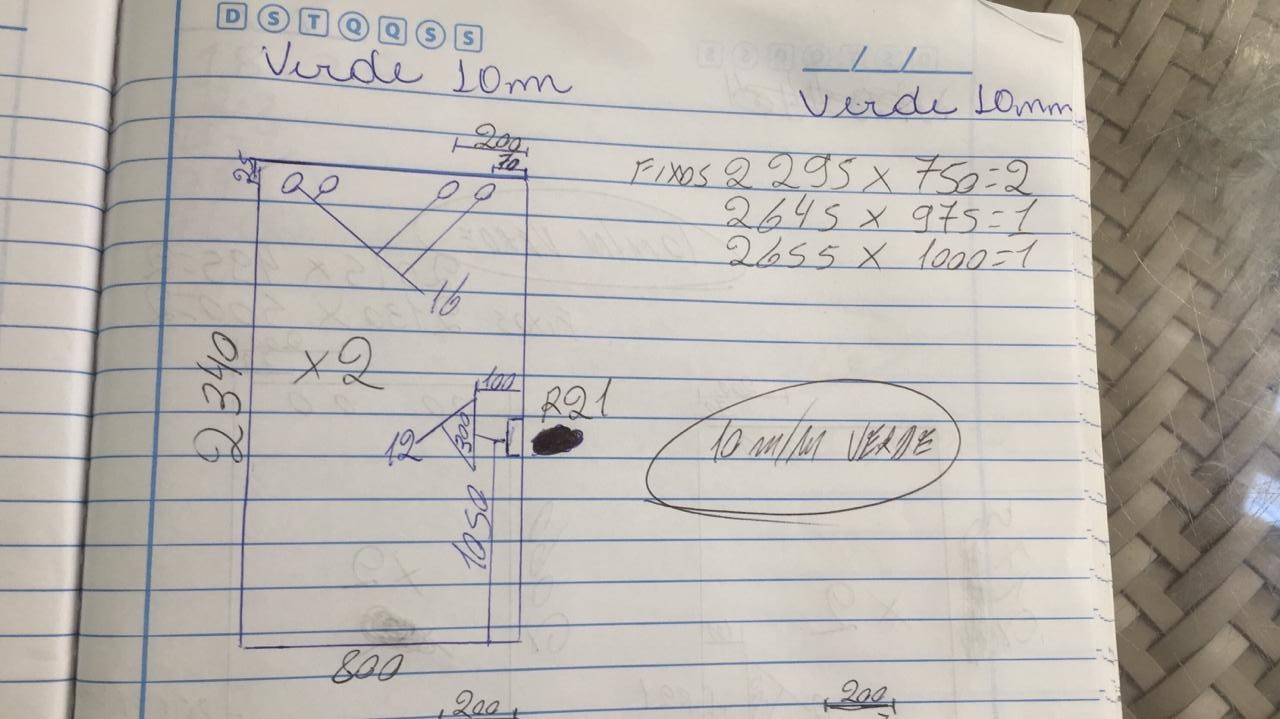 D S T Q Q S S
Verde 10m
__/__/__
Verde 10mm
200
70
25
16
2340
x2
100
R21
12
300
1050
800
Fixos 2295 x 750=2
2645 x 975=1
2655 x 1000=1
10 m/m VERDE
200
200